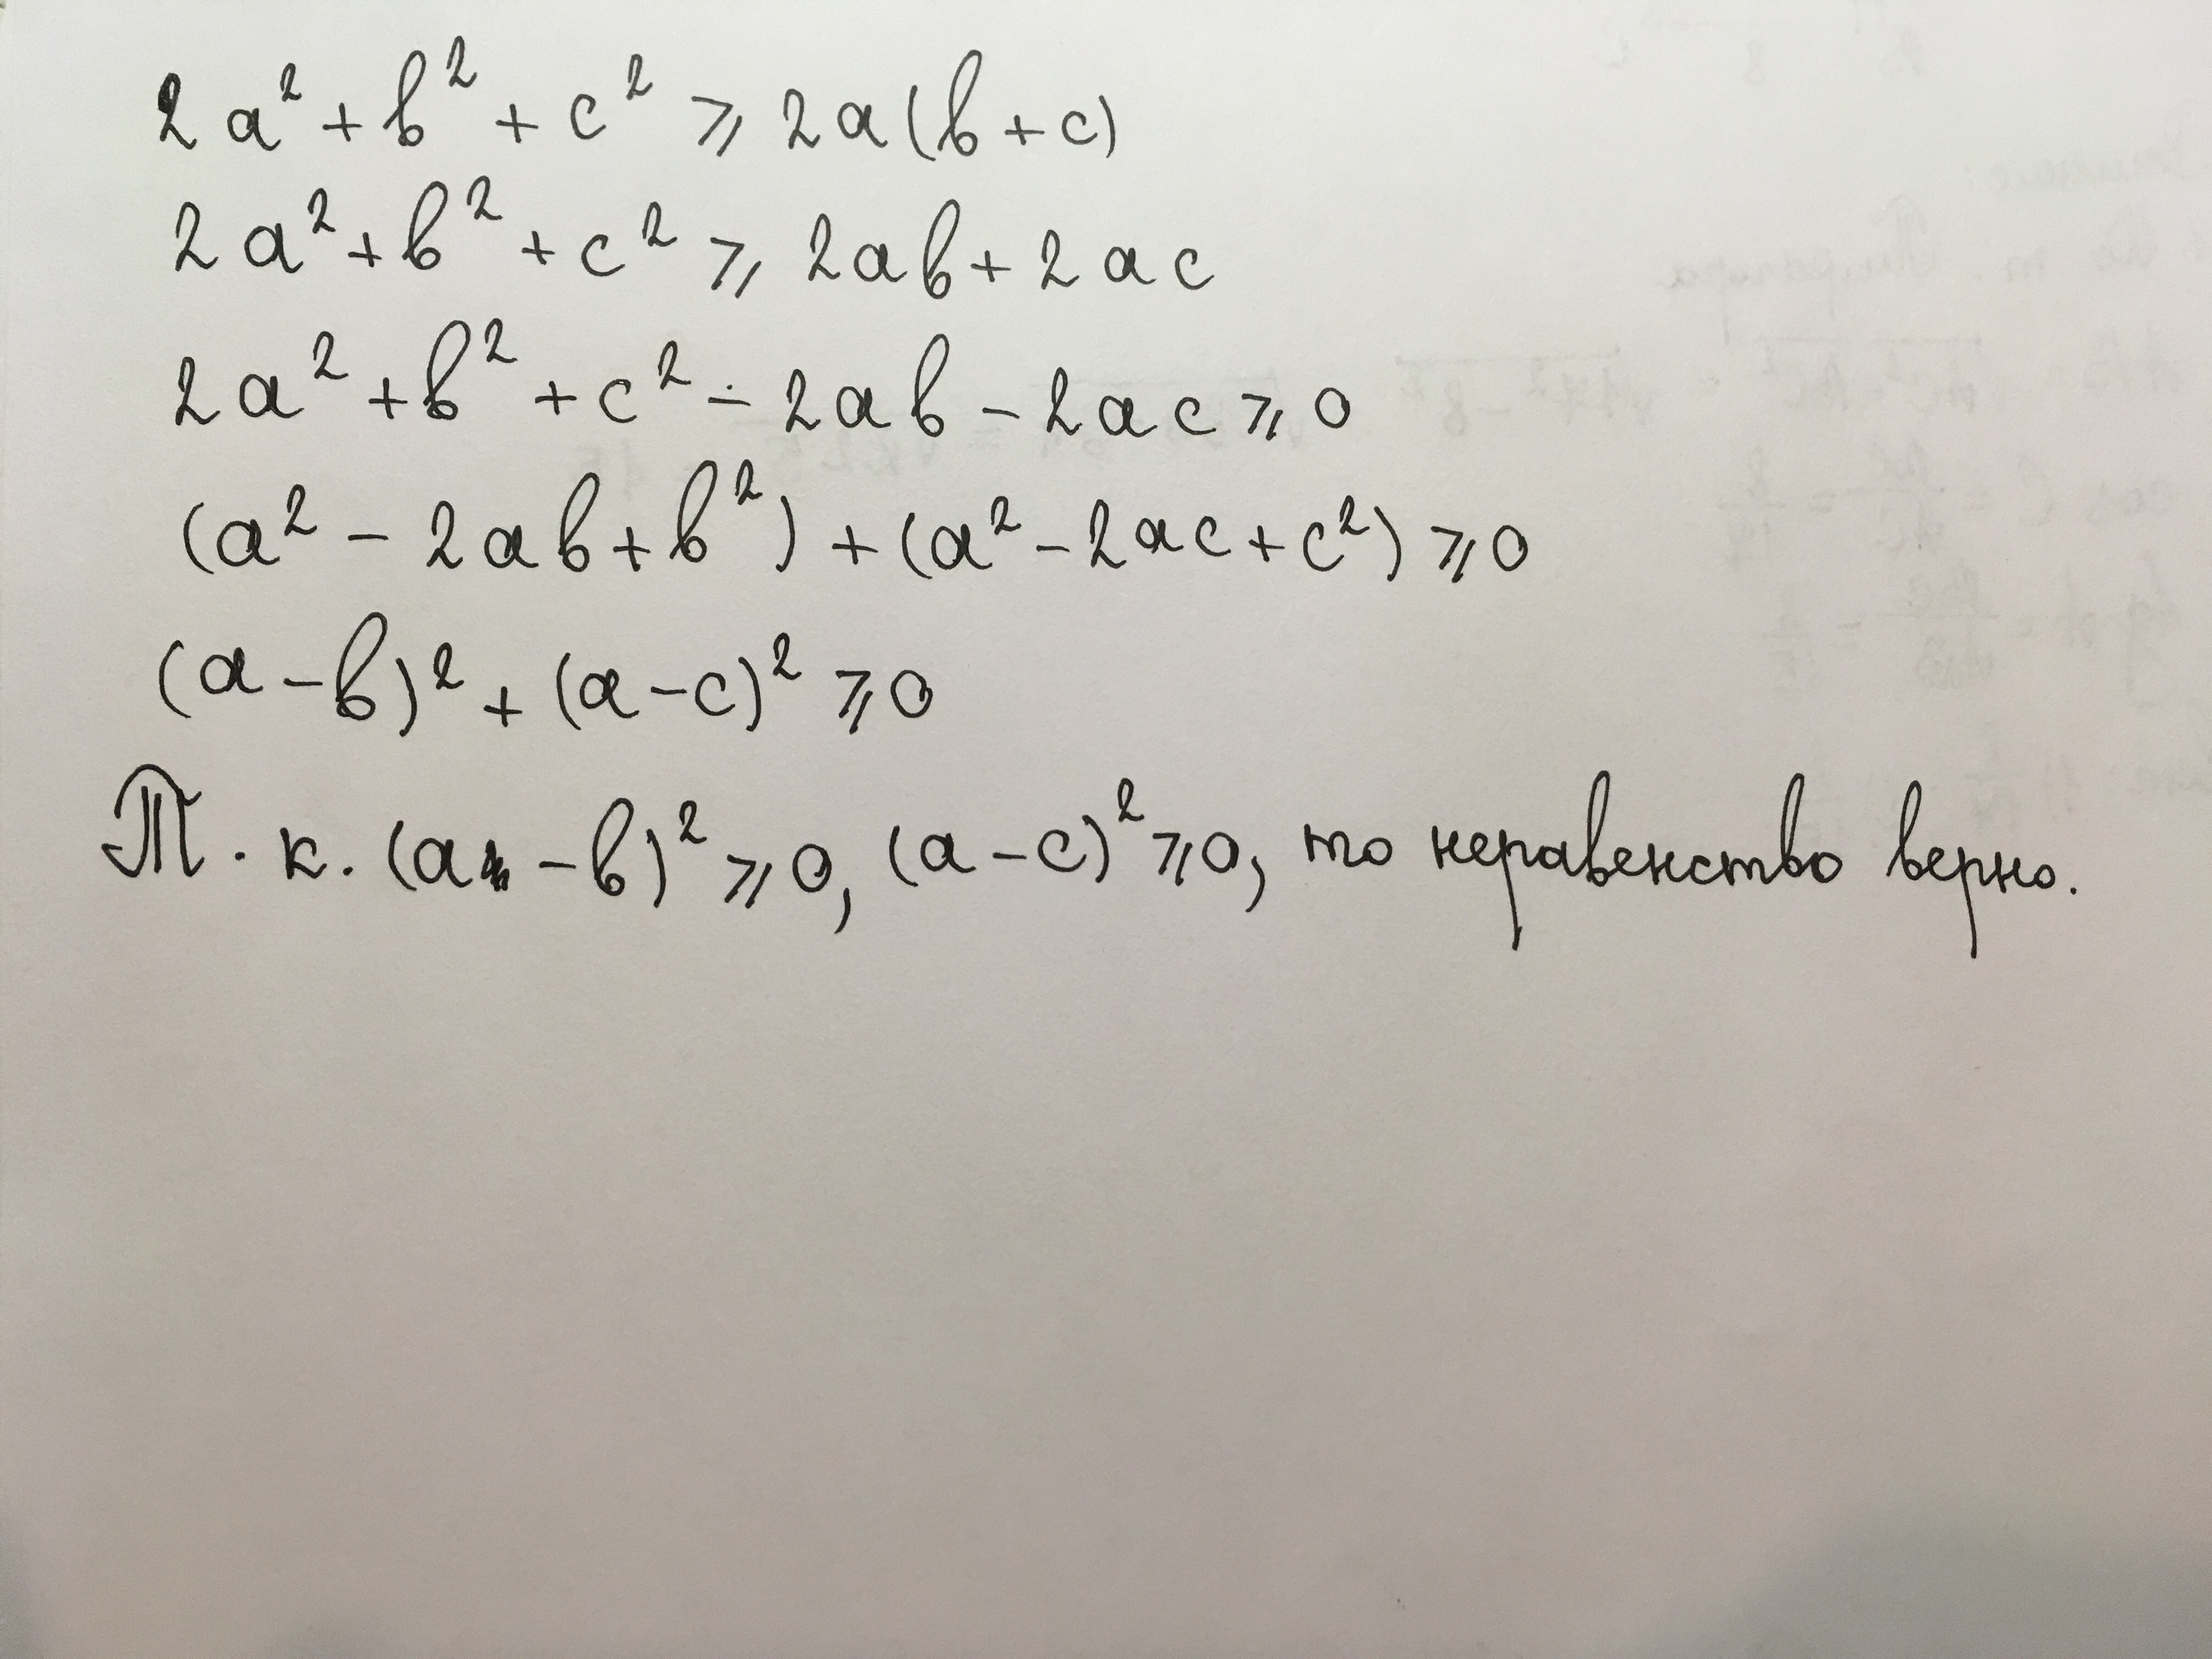 2a² + b² + c² ⩾ 2a(b + c)
2a² + b² + c² ⩾ 2ab + 2ac
2a² + b² + c² - 2ab - 2ac ⩾ 0
(a² - 2ab + b²) + (a² - 2ac + c²) ⩾ 0
(a - b)² + (a - c)² ⩾ 0
Т. к. (a - b)² ⩾ 0, (a - c)² ⩾ 0, то неравенство верно.